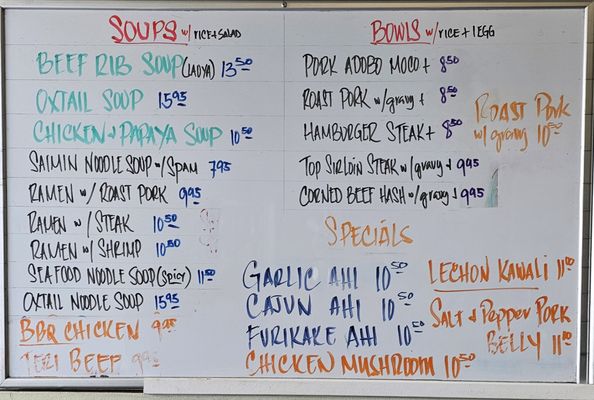 SOUPS w/ RICE + SALAD
BEEF RIB SOUP (LAOYA) 13.50
OXTAIL SOUP 15.95
CHICKEN + PAPAYA SOUP 10.50
SAIMIN NOODLE SOUP w/ SPAM 7.95
RAMEN w/ ROAST PORK 9.95
RAMEN w/ STEAK 10.50
RAMEN w/ SHRIMP 10.50
SEAFOOD NOODLE SOUP (SPICY) 11.50
OXTAIL NOODLE SOUP 15.95
BBQ CHICKEN 9.95
TERI BEEF 9.95
BOWLS w/ RICE + 1 EGG
PORK ADOBO MOCO + 8.50
ROAST PORK w/gravy + 8.50
HAMBURGER STEAK + 8.50
TOP SIRLOIN STEAK w/gravy + 9.95
CORNED BEEF HASH w/gravy + 9.95
ROAST PORK
w/ gravy 10.50
SPECIALS
GARLIC AHI 10.50
CAJUN AHI 10.50
FURIKAKE AHI 10.50
CHICKEN MUSHROOM 10.50
LECHON KAWALI 11.00
SALT & PEPPER PORK
BELLY 11.00